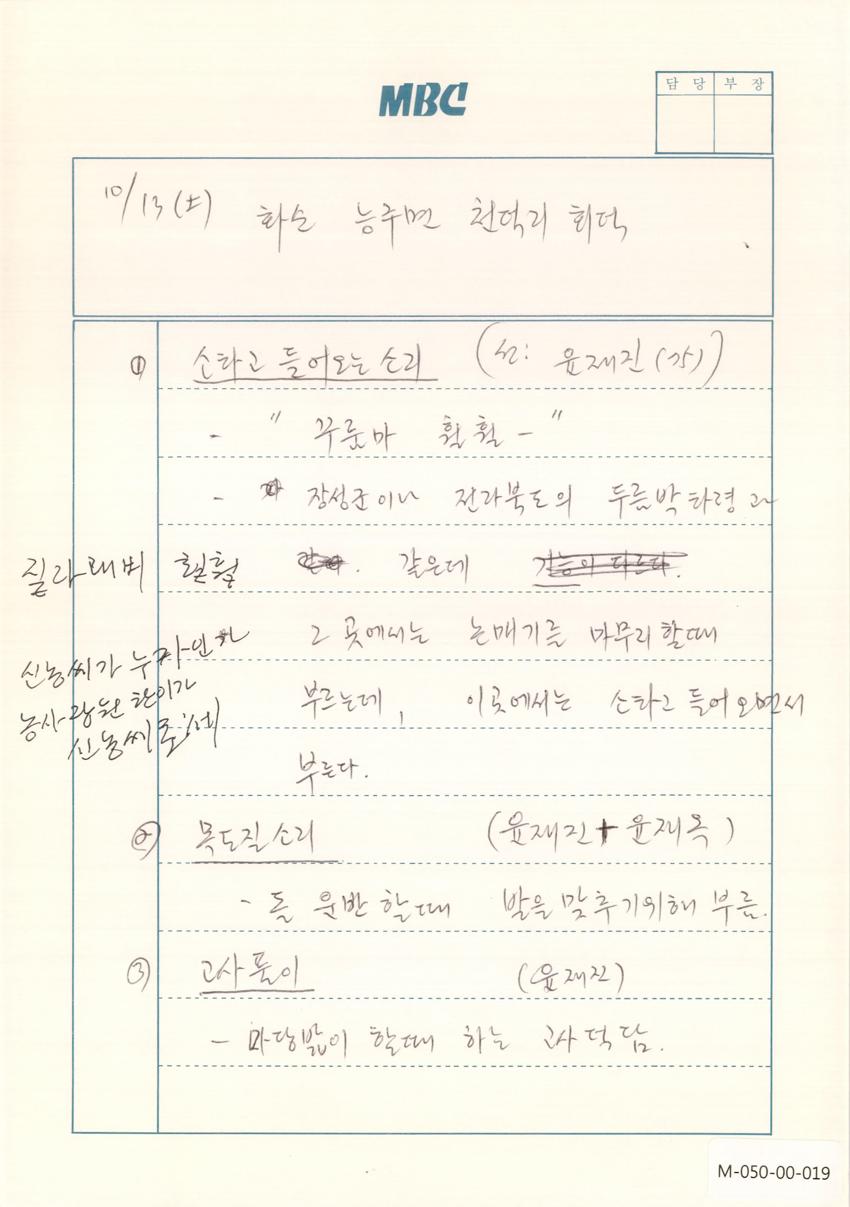 MBC
담 당 부 장
10/13(土) 화순 능주면 천덕리 회덕
① 소타고 들어오는 소리 (선: 윤재진(73))
- " 꾸룸마 훨훨 - "
- 장성군이나 전라북도의 두름박 타령과
질라래비 훨훨 같은데
그 곳에서는 논매기를 마무리할때
신농씨가 누구인가
부르는데, 이곳에서는 소타고 들어오면서
농사 장원
신농씨로세
부른다.
② 목도질소리 (윤재진 + 윤재옥)
- 돌 운반 할때 발을 맞추기위해 부름.
③ 고사풀이 (윤재진)
- 마당밟이 할때 하는 고사 덕담.
M-050-00-019